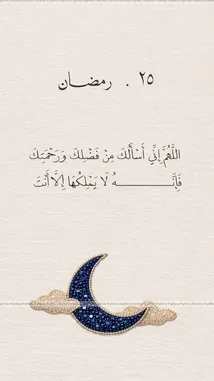 ٢٥ . رمضان
اللَّهُمَّ إِنِّي أَسْأَلُكَ مِنْ فَضْلِكَ وَرَحْمَتِكَ
فَإِنَّهُ لَا يَمْلِكُهَا إِلَّا أَنْتَ